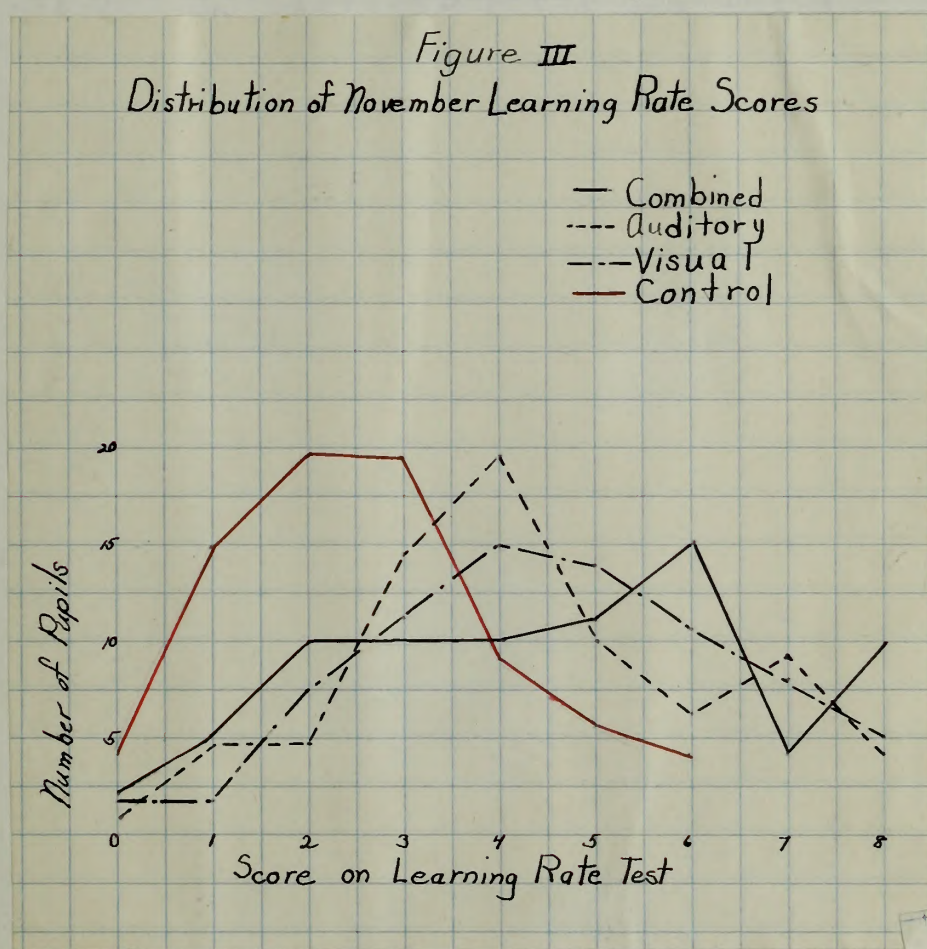 Figure III
Distribution of November Learning Rate Scores
Combined
Auditory
Visual
Control
20
15
10
5
Number of Pupils
0 1 2 3 4 5 6 7 8
Score on Learning Rate Test